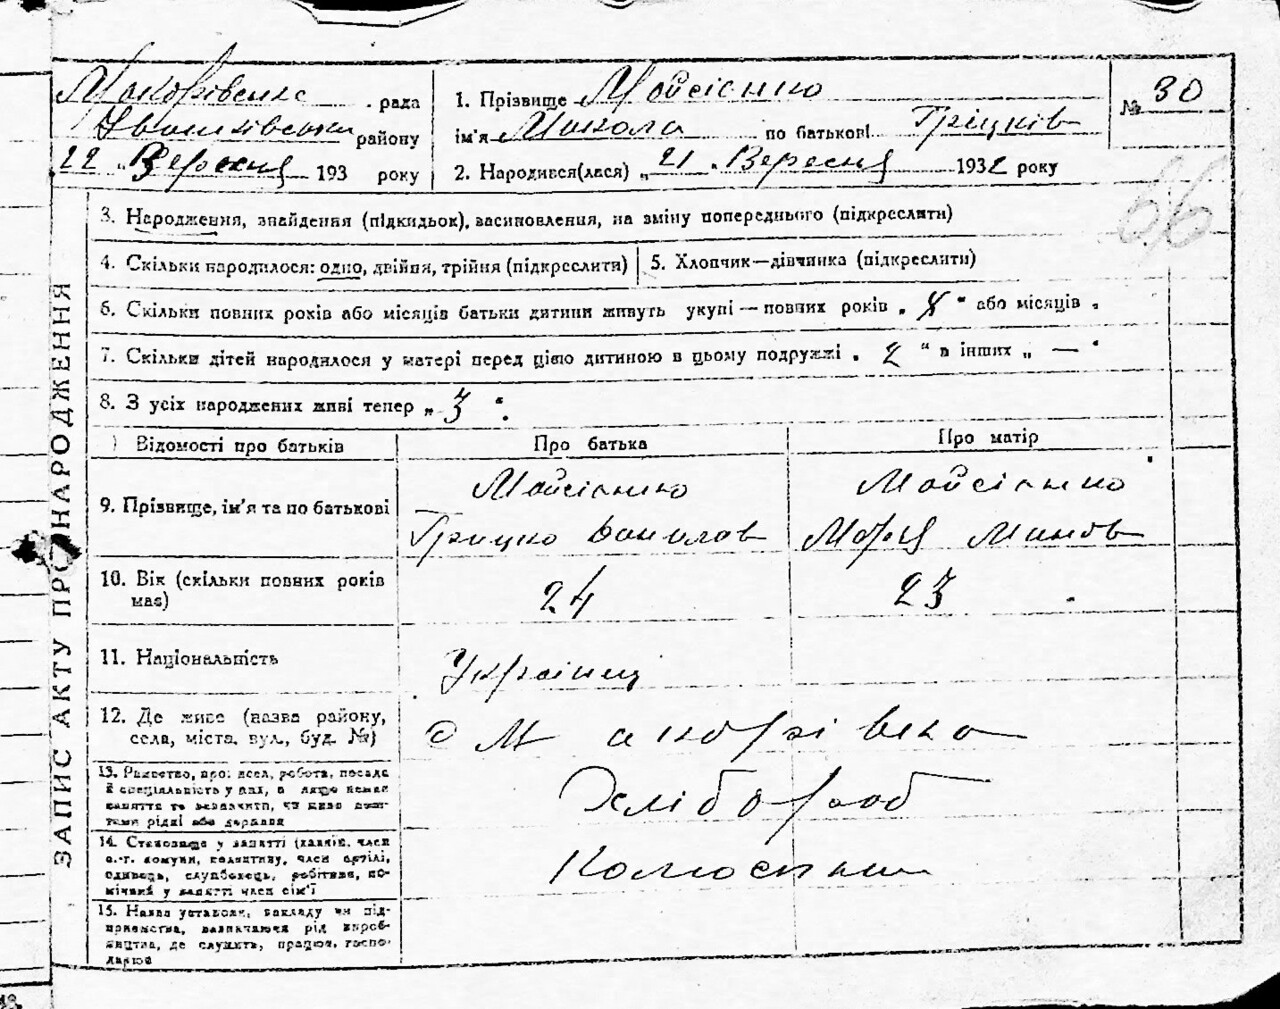 Макорівська рада
району
22 " Вересня 193 року
1. Прізвище Мойсієнко
ім'я Микола по батькові Гріцків
2. Народився(лася) „ 21 „ Вересня 1932 року
№ 30
66
3. Народження, знайдення (підкидьок), всиновлення, на зміну попереднього (підкреслити)
4. Скільки народилося: одно, двійня, трійня (підкреслити)
5. Хлопчик—дівчинка (підкреслити)
6. Скільки повних років або місяців батьки дитини живуть укупі — повних років „ “ або місяців „
7. Скільки дітей народилося у матері перед цією дитиною в цьому подружжі „ 2 “ в інших „ — “
8. З усіх народжених живі тепер „ 3 “.
ЗАПИС АКТУ ПРО НАРОДЖЕННЯ
Відомості про батьків
Про батька
Про матір
9. Прізвище, ім'я та по батькові
Мойсієнко
Грицко Данилов
Мойсієнко
Марія
10. Вік (скільки повних років
має)
24
23
11. Національність
Українец
12. Де живе (назва району,
села, міста, вул., буд. №)
с Макорівка
13.
тими рідні або держава
Хлібороб
14. Становище у занятті
с.-г. комуни, колективу, член артілі,
одинець, службовець, робітник, по-
мічний у занятті член сім'ї
Колгоспник
15. Назва установи, закладу чи під-
приємства, зазначаючи рід вироб-
ництва, де служить, працює, госпо-
дарює